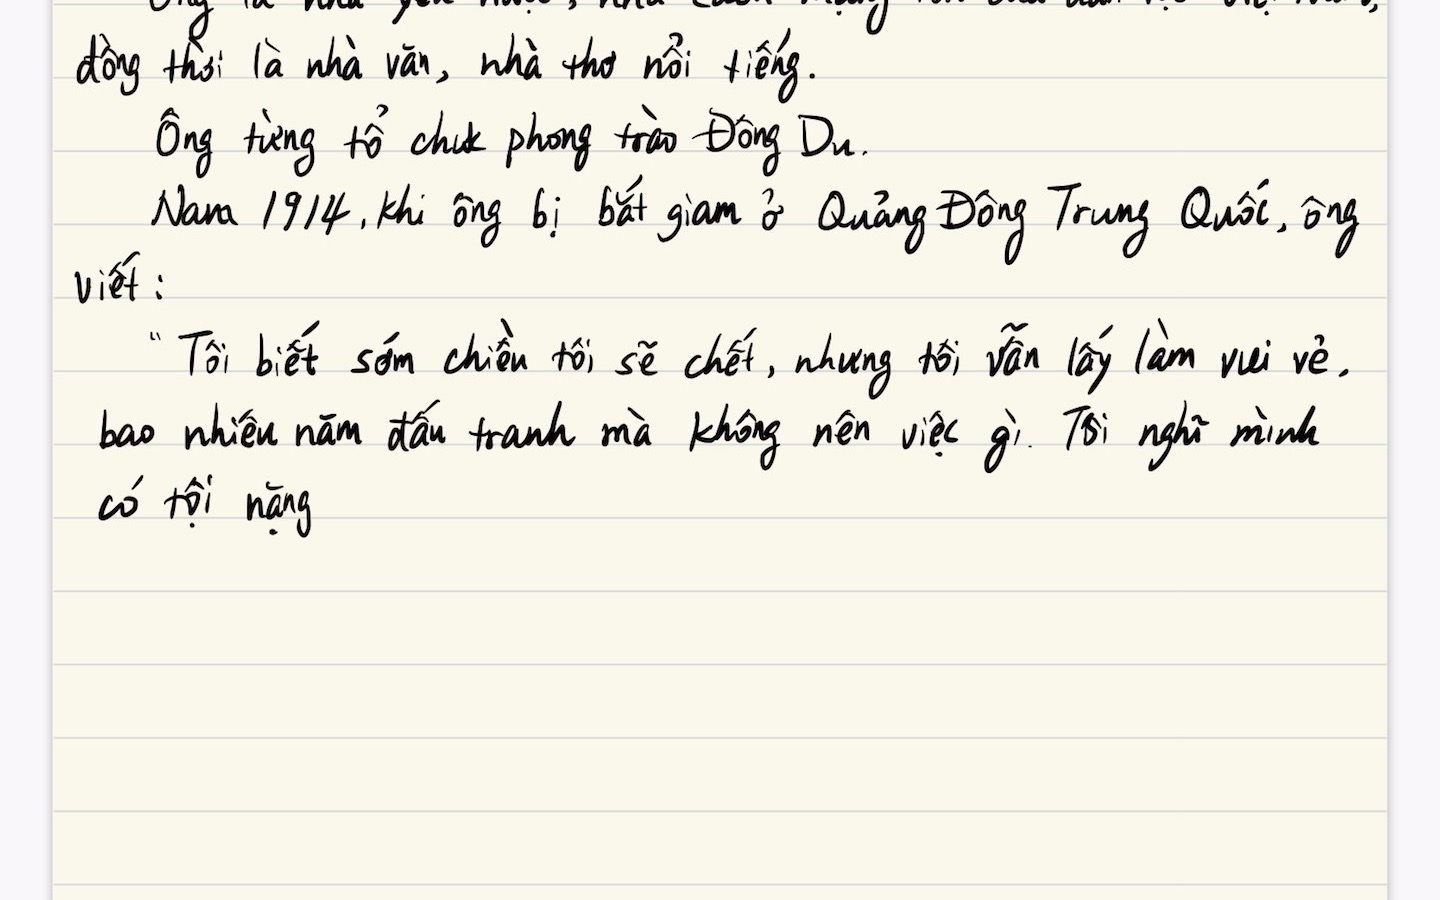 Ông là nhà yêu nước, nhà cách mạng lớn của dân tộc Việt Nam,
đồng thời là nhà văn, nhà thơ nổi tiếng.
Ông từng tổ chức phong trào Đông Du.
Nam 1914, khi ông bị bắt giam ở Quảng Đông Trung Quốc, ông
viết:
"Tôi biết sớm chiều tôi sẽ chết, nhưng tôi vẫn lấy làm vui vẻ.
bao nhiêu năm đấu tranh mà không nên việc gì. Tôi nghĩ mình
có tội nặng